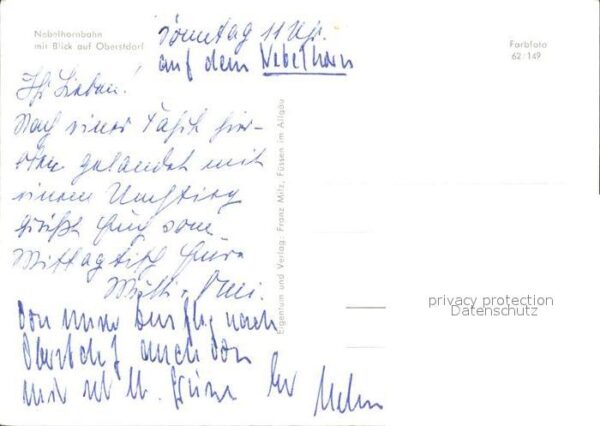 Nebelhornbahn
mit Blick auf Oberstdorf
Sonntag 11 Uhr.
auf dem Nebelhorn
Farbfoto
62/149
Ihr Lieben!
Nach einer Fahrt hier-
oben gelandet mit
einem Umstieg
grüßt Euch vom
Mittagstisch Eure
Mutti
Von einer Ausflug nach
Oberstdorf auch von
mir
Eigentum und Verlag: Franz Milz, Füssen im Allgäu
privacy protection
Datenschutz